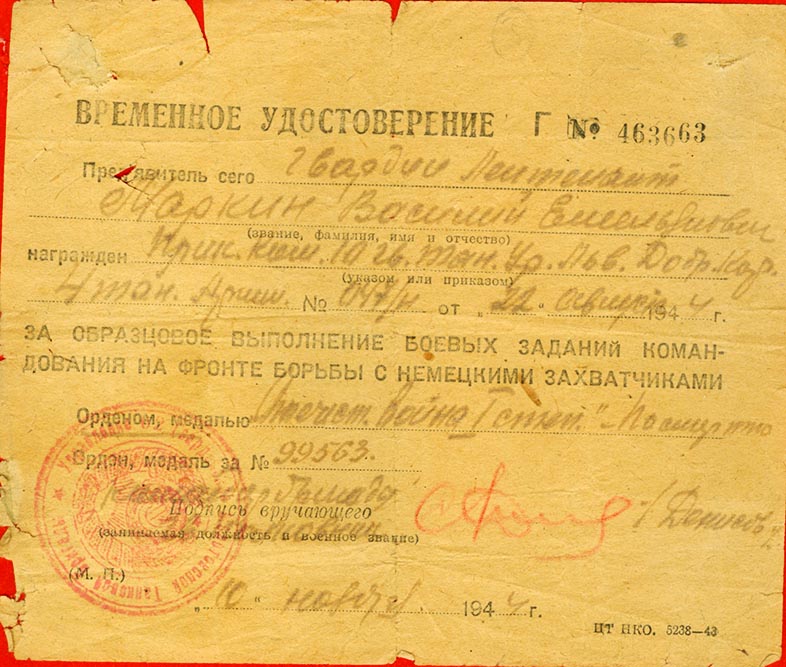 ВРЕМЕННОЕ УДОСТОВЕРЕНИЕ Г № 463663
Предъявитель сего Гвардии Лейтенант
Маркин Василий Емельянович
(звание, фамилия, имя и отчество)
награжден Прик. ком. 10 гв. тан. Ур. Льв. Добр. Кор.
(указом или приказом)
4 тан. Армии № от „22" август 1944 г.
ЗА ОБРАЗЦОВОЕ ВЫПОЛНЕНИЕ БОЕВЫХ ЗАДАНИЙ КОМАН-
ДОВАНИЯ НА ФРОНТЕ БОРЬБЫ С НЕМЕЦКИМИ ЗАХВАТЧИКАМИ
Орденом, медалью Отечест. война I степ. "Посмертно
Орден, медаль за № 99563.
Командир
Подпись вручающего
(занимаемая должность и военное звание)
(М. П.)
„10" ноября 1944 г.
ЦТ НКО. 5238—43